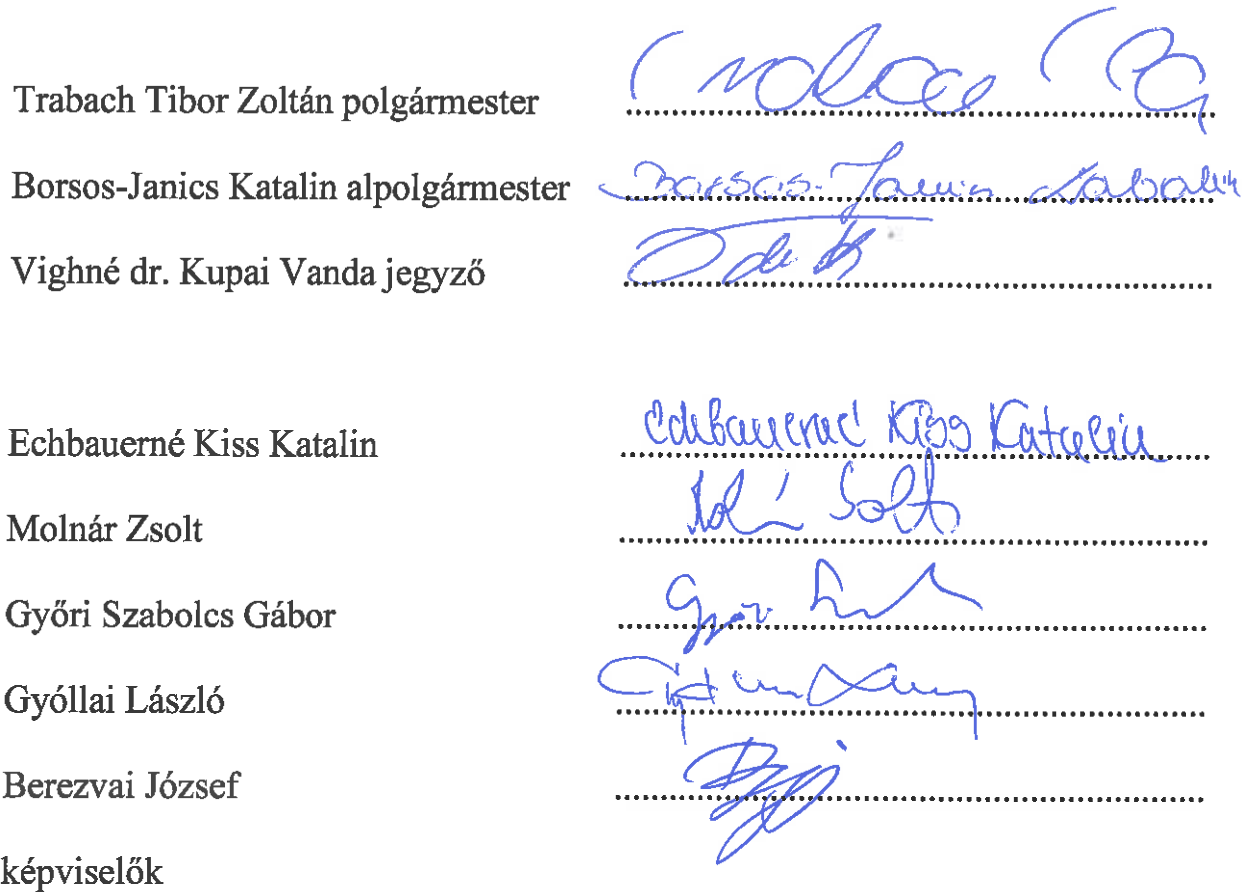 Trabach Tibor Zoltán polgármester
Borsos-Janics Katalin alpolgármester Borsos-Janics Katalin
Vighné dr. Kupai Vanda jegyző
Echbauerné Kiss Katalin Echbauerné Kiss Katalin
Molnár Zsolt
Győri Szabolcs Gábor
Gyóllai László
Berezvai József
képviselők